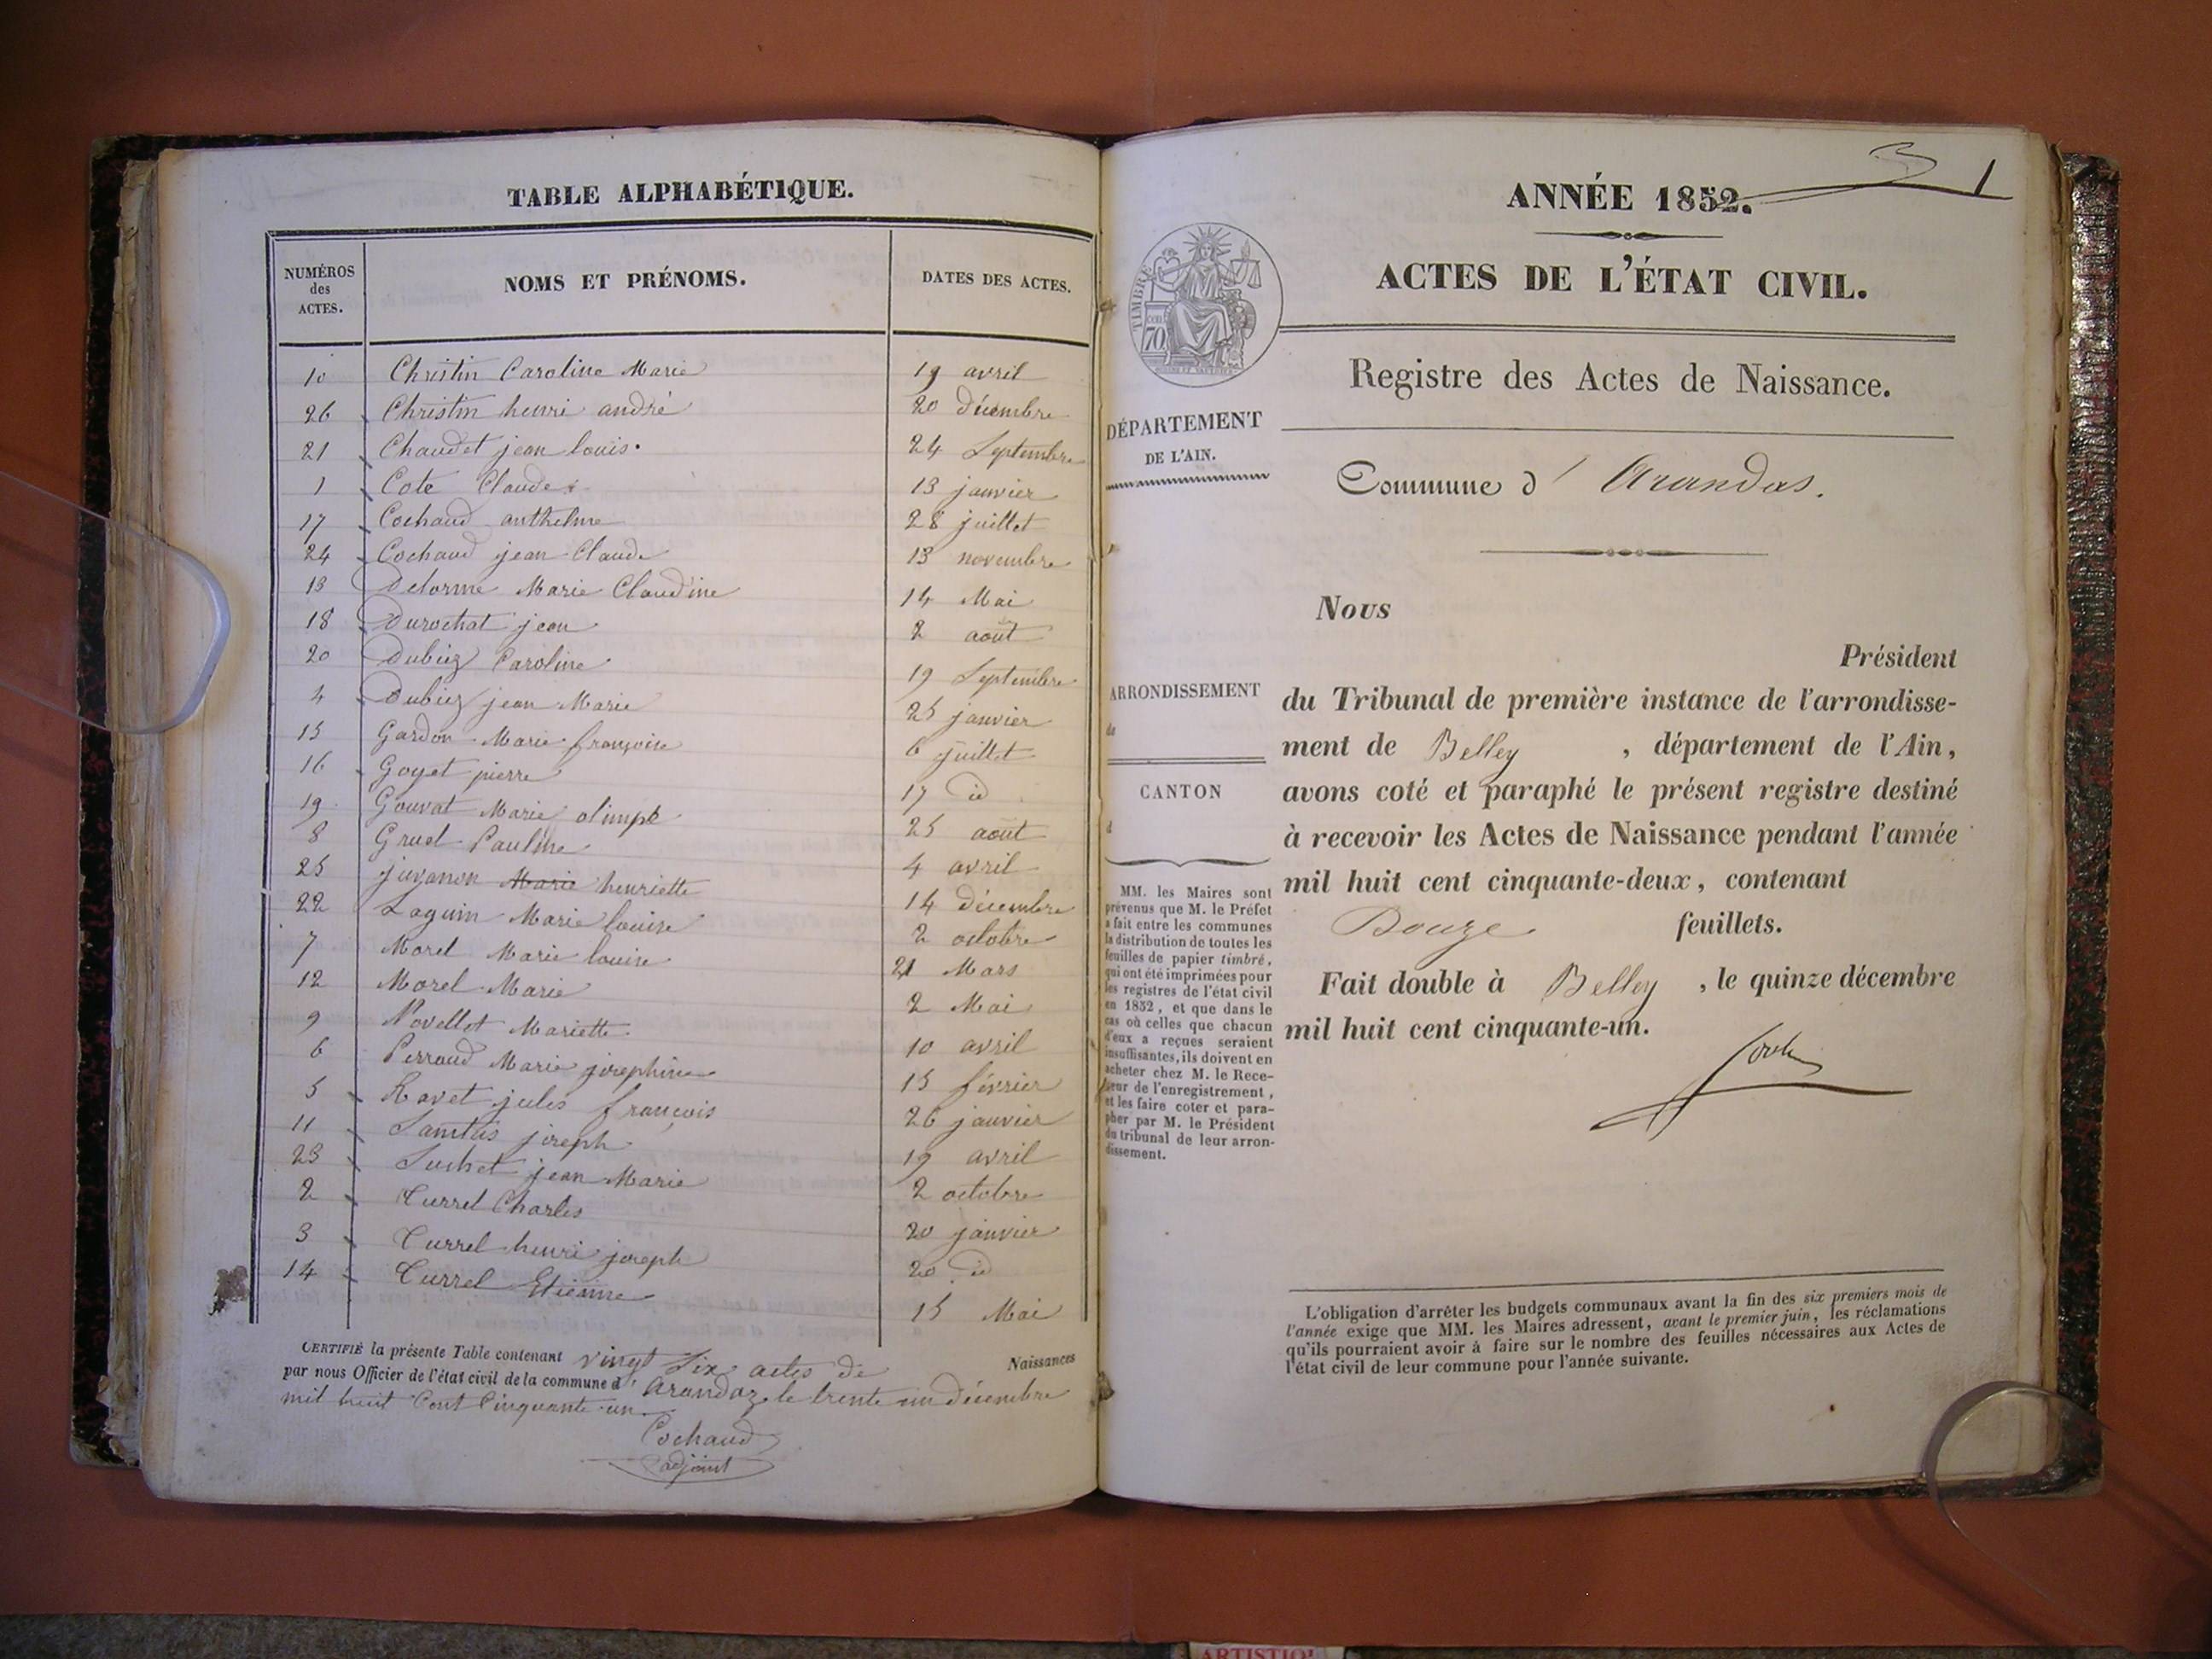 TABLE ALPHABÉTIQUE.
NUMÉROS des ACTES. NOMS ET PRÉNOMS. DATES DES ACTES.
10 Christin Caroline Marie 19 avril
26 Christin henri andré 20 décembre
21 Chaudet jean louis. 24 Septembre
1 Cote Claude 13 janvier
17 Cochaud anthelme 28 juillet
24 Cochaud jean Claude 13 novembre
13 Delorme Marie Claudine 14 Mai
18 Durochat jean 2 août
20 Dubiez Caroline 19 Septembre
4 Dubiez jean Marie 25 janvier
15 Gardon Marie françoise 6 juillet
16 Goyet pierre 17 id
19 Gouvat Marie olimpe 25 août
8 Gruet Pauline 4 avril
25 juvanon Marie henriette 14 décembre
22 Laguin Marie louise 2 octobre
7 Morel Marie louise 21 Mars
12 Morel Marie 2 Mai
9 Novellot Mariette 10 avril
6 Perraud Marie josephine 15 février
5 Ravet jules françois 26 janvier
11 joseph 19 avril
23 Suchet jean Marie 2 octobre
2 Turrel Charles 20 janvier
3 Turrel henri joseph 20 id
14 Turrel Etienne 15 Mai
CERTIFIÉ la présente Table contenant vingt Six actes de Naissances
par nous Officier de l'état civil de la commune d' arandaz le trente un décembre
mil huit Cent Cinquante un
Cochaud
adjoint
3 1
ANNÉE 1852.
ACTES DE L'ÉTAT CIVIL.
TIMBRE
70
Registre des Actes de Naissance.
DÉPARTEMENT
DE L'AIN.
Commune d' Arandas.
ARRONDISSEMENT
de
CANTON
d
MM. les Maires sont
prévenus que M. le Préfet
a fait entre les communes
la distribution de toutes les
feuilles de papier timbré,
qui ont été imprimées pour
les registres de l'état civil
en 1852, et que dans le
cas où celles que chacun
d'eux a reçues seraient
insuffisantes, ils doivent en
acheter chez M. le Rece-
veur de l'enregistrement,
et les faire coter et para-
pher par M. le Président
du tribunal de leur arron-
dissement.
Nous
Président
du Tribunal de première instance de l'arrondisse-
ment de Belley , département de l'Ain,
avons coté et paraphé le présent registre destiné
à recevoir les Actes de Naissance pendant l'année
mil huit cent cinquante-deux, contenant
Douze feuillets.
Fait double à Belley , le quinze décembre
mil huit cent cinquante-un.
L'obligation d'arrêter les budgets communaux avant la fin des six premiers mois de
l'année exige que MM. les Maires adressent, avant le premier juin, les réclamations
qu'ils pourraient avoir à faire sur le nombre des feuilles nécessaires aux Actes de
l'état civil de leur commune pour l'année suivante.